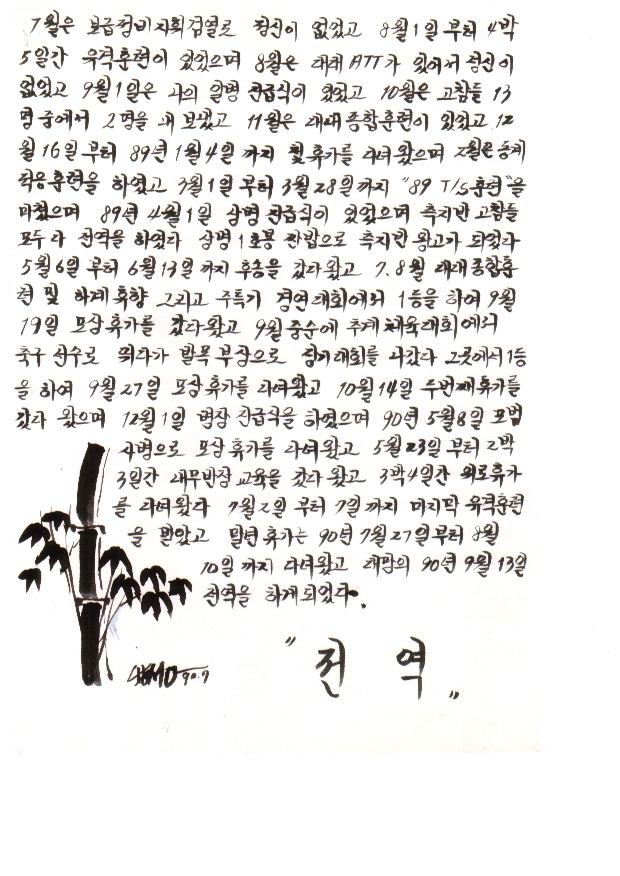 7월은 보급정비 지휘검열로 정신이 없었고 8월1일 부터 4박
5일간 유격훈련이 있었으며 8월은 대대 ATT가 있어서 정신이
없었고 9월1일은 나의 일병 진급식이 있었고 10월은 고참들 13
명 중에서 2명을 내 보냈고 11월은 대대종합훈련이 있었고 12
월16일 부터 89년1월4일 까지 첫 휴가를 다녀왔으며 2월은 동계
적응훈련을 하였고 3월1일 부터 3월28일까지 "89 T/S훈련"을
마쳤으며 89년 4월1일 상병 진급식이 있었으며 측지반 고참들
모두다 전역을 하였다 상병1호봉 짠밥으로 측지반 왕고가 되었다
5월6일 부터 6월13일 까지 후송을 갔다왔고 7.8월 대대종합훈
련 및 하계휴양 그리고 주특기 경연대회에서 1등을 하여 9월
19일 포상휴가를 갔다왔고 9월중순에 추계체육대회에서
축구선수로 뛰다가 발목 부상으로 대회를 나갔다 그곳에서 1등
을 하여 9월27일 포상휴가를 다녀왔고 10월14일 두번째휴가를
갔다 왔으며 12월1일 병장 진급식을 하였으며 90년 5월8일 모범
사병으로 포상휴가를 다녀왔고 5월23일 부터 2박
3일간 내무반장 교육을 갔다 왔고 3박4일간 위로휴가
를 다녀왔다 7월2일 부터 7일까지 마지막 유격훈련
을 받았고 말년휴가는 90년 7월27일부터 8월
10일 까지 다녀왔고 대망의 90년 9월13일
전역을 하게되었다.
90.9
"전 역"